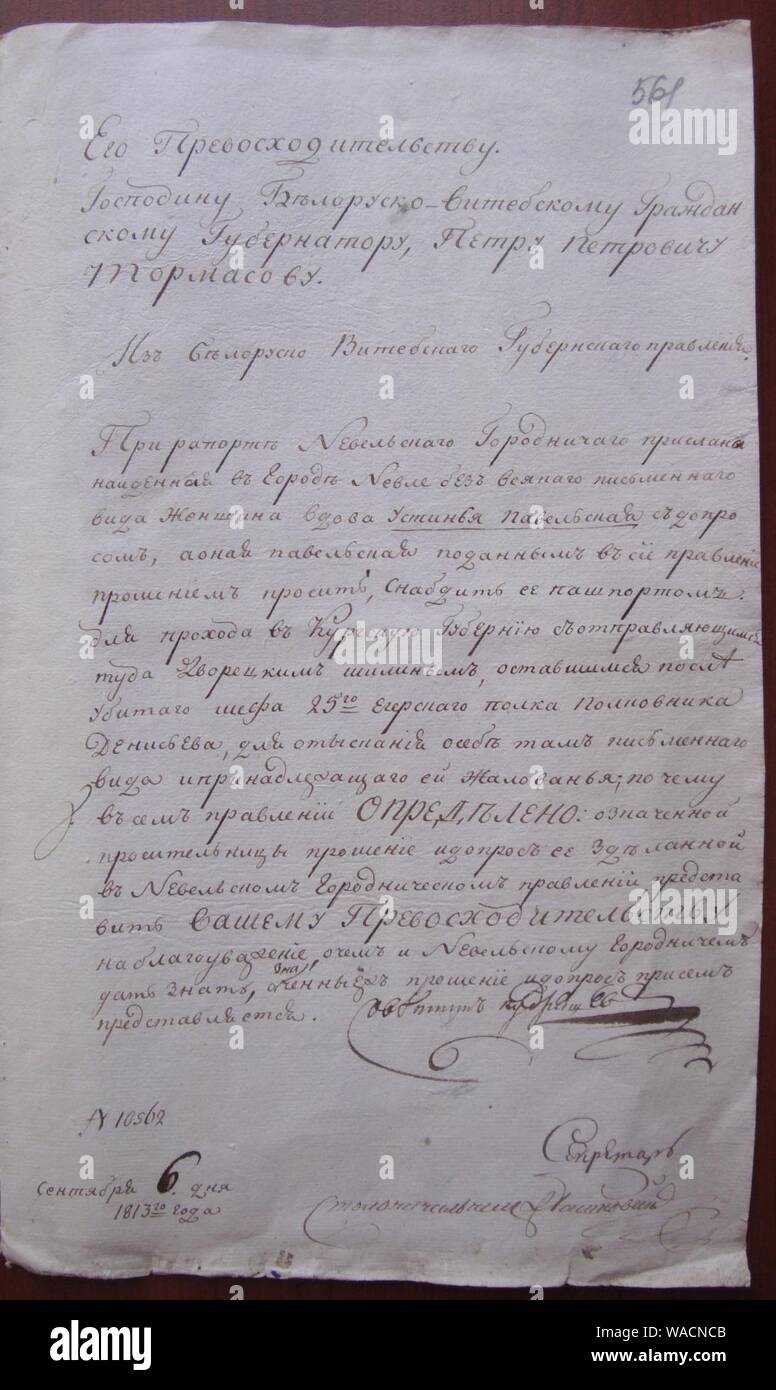 561
Его Превосходительству.
Господину Бѣлоруско-Витебскому Граждан
скому Губернатору, Петру Петровичу
Тормасову.
Изъ бѣлоруско Витебскаго Губернскаго правления.
При рапортѣ Невельскаго Городничаго прислана
найденная въ Городѣ Невле безъ всякаго писменнаго
вида Женщина вдова Устинья Павельская съ допро
сомъ, а оная павельская поданнымъ въ сїе правленїе
прошенїемъ проситъ, снабдить ее пашпортомъ
для прохода въ Курскую Губернїю съ отправляющимся
туда Дворецкимъ шилинымъ, оставшимся послѣ
убитаго шефа 25го Егерскаго полка Полковника
Денисьева, для отысканїя о себѣ тамъ письменнаго
вида и принадлежащаго ей Жалованья; по чему
въ семъ правленїи ОПРЕДѢЛЕНО: означенной
просительницы прошенїе и допросъ ее Здѣланной
въ Невельскомъ Городническомъ правленїи предста
вить ВАШЕМУ ПРЕВОСХОДИТЕЛЬСТВУ
на благоуваженїе, о чемъ и Невельскому Городничему
дать знать, прошенїе и допросъ при семъ
представляется. Совѣтникъ
№ 10562
Секретарь
Сентября 6 дня
1813го года
Столоначальник
alamy
Image ID: WACNCB
www.alamy.com